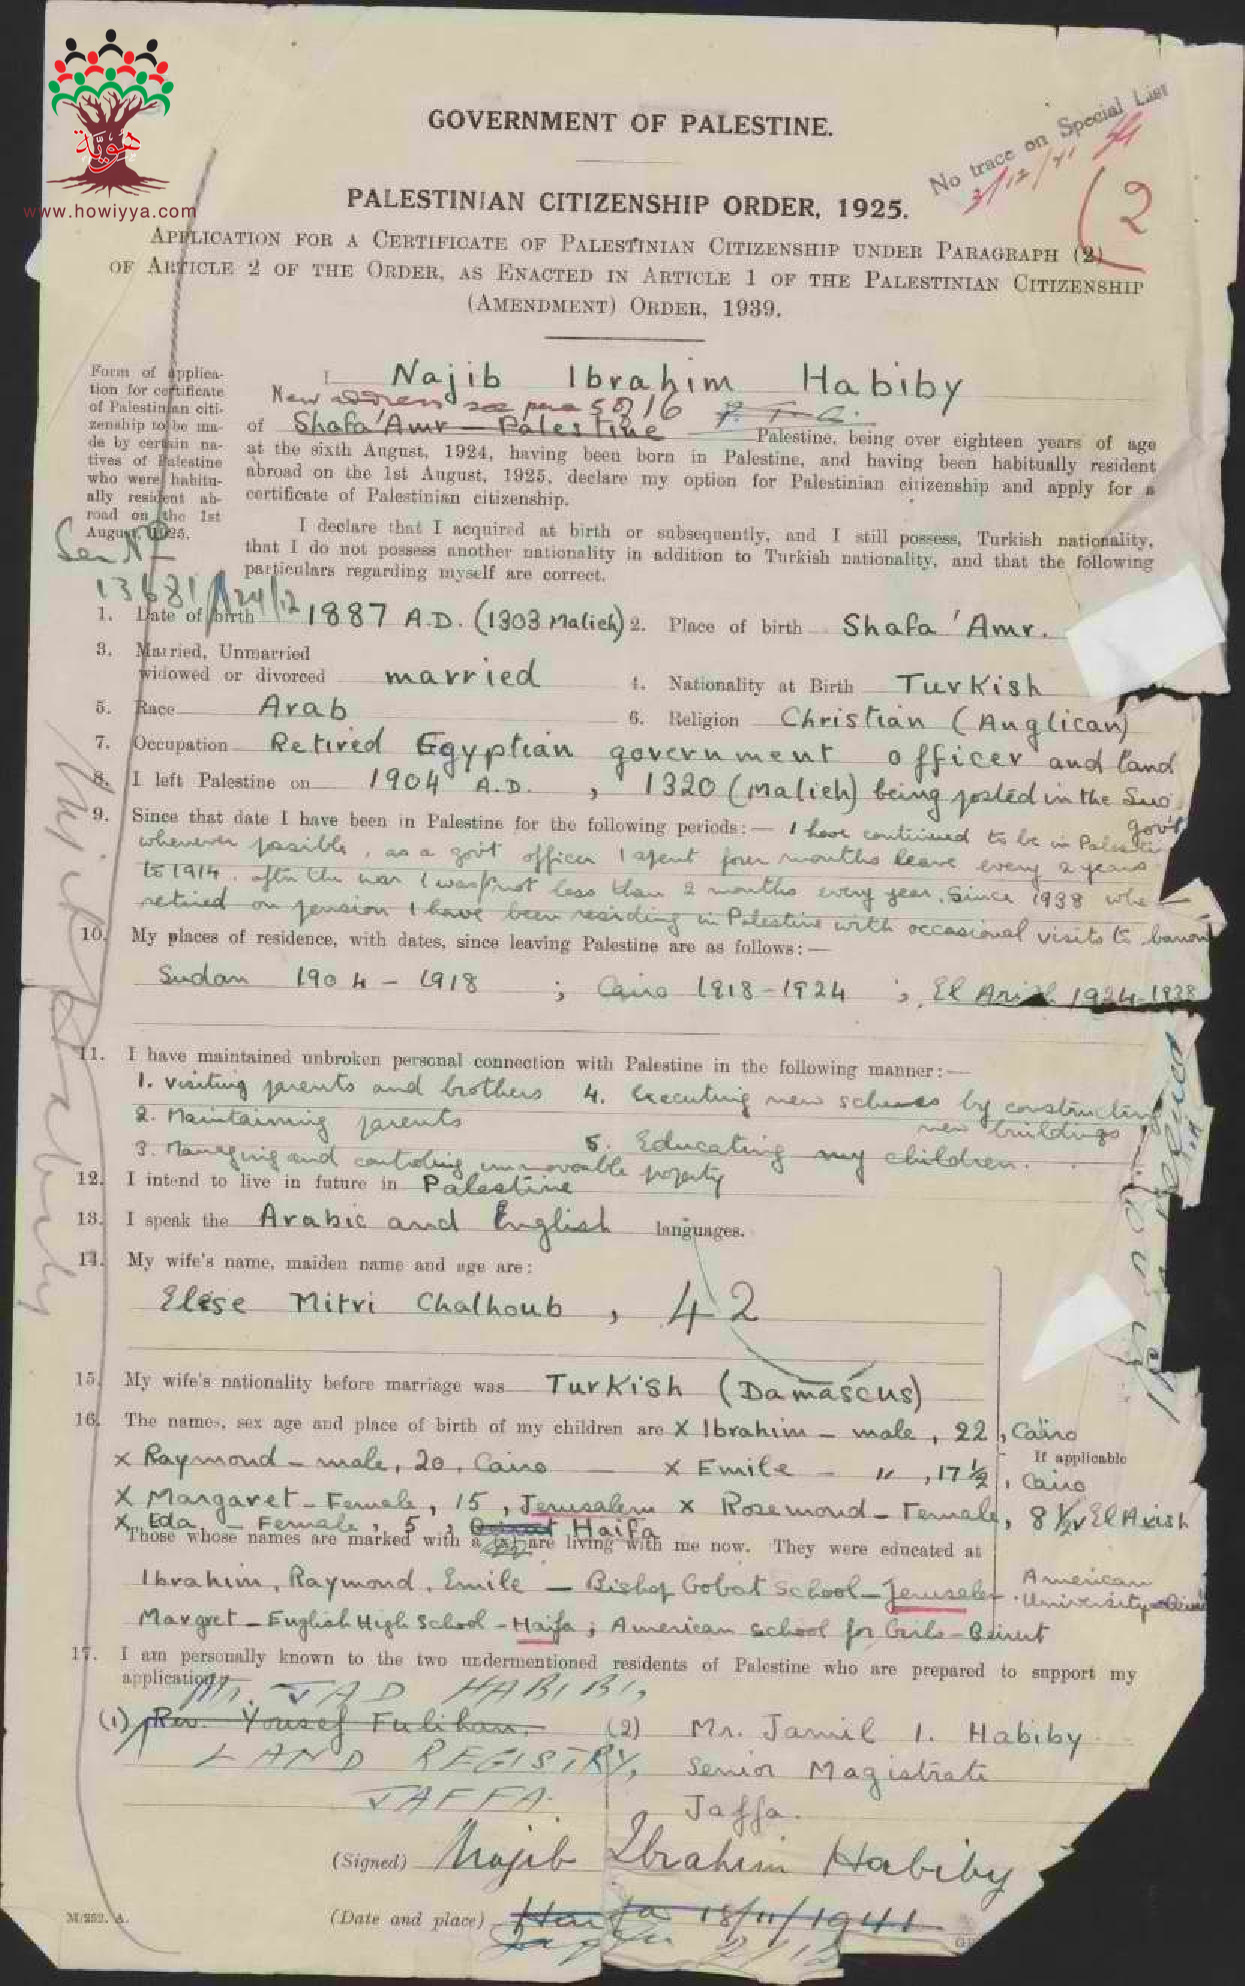 هويّة
www.howiyya.com
GOVERNMENT OF PALESTINE.
No trace on Special List
3/12/41
(2
PALESTINIAN CITIZENSHIP ORDER, 1925.
APPLICATION FOR A CERTIFICATE OF PALESTINIAN CITIZENSHIP UNDER PARAGRAPH (2)
OF ARTICLE 2 OF THE ORDER, AS ENACTED IN ARTICLE 1 OF THE PALESTINIAN CITIZENSHIP
(AMENDMENT) ORDER, 1939.
Form of applica-
tion for certificate
of Palestinian citi-
zenship to be ma-
de by certain na-
tives of Palestine
who were habitu-
ally resident ab-
road on the 1st
August, 1925.
13681 24/12
I Najib Ibrahim Habiby
New address see para 5 of 16 P.T.O.
of Shafa 'Amr — Palestine Palestine, being over eighteen years of age
at the sixth August, 1924, having been born in Palestine, and having been habitually resident
abroad on the 1st August, 1925, declare my option for Palestinian citizenship and apply for a
certificate of Palestinian citizenship.
I declare that I acquired at birth or subsequently, and I still possess, Turkish nationality,
that I do not possess another nationality in addition to Turkish nationality, and that the following
particulars regarding myself are correct.
1. Date of birth 1887 A.D. (1303 Malieh) 2. Place of birth Shafa 'Amr.
3. Married, Unmarried
widowed or divorced married 4. Nationality at Birth Turkish
5. Race Arab 6. Religion Christian (Anglican)
7. Occupation Retired Egyptian government officer and land
8. I left Palestine on 1904 A.D. , 1320 (Malieh) being posted in the Sud
9. Since that date I have been in Palestine for the following periods:— I have continued to be in Palesti Gov't
whenever possible, as a gov't officer I spent four months leave every 2 years
to 1914. after the war I was not less than 2 months every year. Since 1938 whe
retired on pension I have been residing in Palestine with occasional visits to
10. My places of residence, with dates, since leaving Palestine are as follows:—
Sudan 1904 – 1918 ; Cairo 1918–1924 ; El Arish 1924–1938
11. I have maintained unbroken personal connection with Palestine in the following manner:—
1. Visiting parents and brothers 4. Executing new schemes by constructing
new buildings
2. Maintaining parents
3. Managing and controling immovable property 5. Educating my children.
12. I intend to live in future in Palestine
13. I speak the Arabic and English languages.
14. My wife's name, maiden name and age are:
Elese Mitri Chalhoub , 42
15. My wife's nationality before marriage was Turkish (Damascus)
16. The names, sex age and place of birth of my children are x Ibrahim – male, 22, Cairo
If applicable
x Raymond – male, 20, Cairo — x Emile – " , 17 ½, Cairo
x Margaret – Female, 15, Jerusalem x Rosemond – Female, 8 ½ El Arish
x Eda – Female, 5, Haifa
Those whose names are marked with a (x) are living with me now. They were educated at
Ibrahim, Raymond, Emile — Bishop Gobat School – Jerusalem . American University
Margret – English High School – Haifa ; American School for Girls – Beirut
17. I am personally known to the two undermentioned residents of Palestine who are prepared to support my
application:
JAD HABIBI,
(1) Rev. Yousef Fulihan. (2) Mr. Jamil I. Habiby
LAND REGISTRY, Senior Magistrate
JAFFA. Jaffa.
(Signed) Najib Ibrahim Habiby
M/252. A. (Date and place) Haifa 18/11/1941